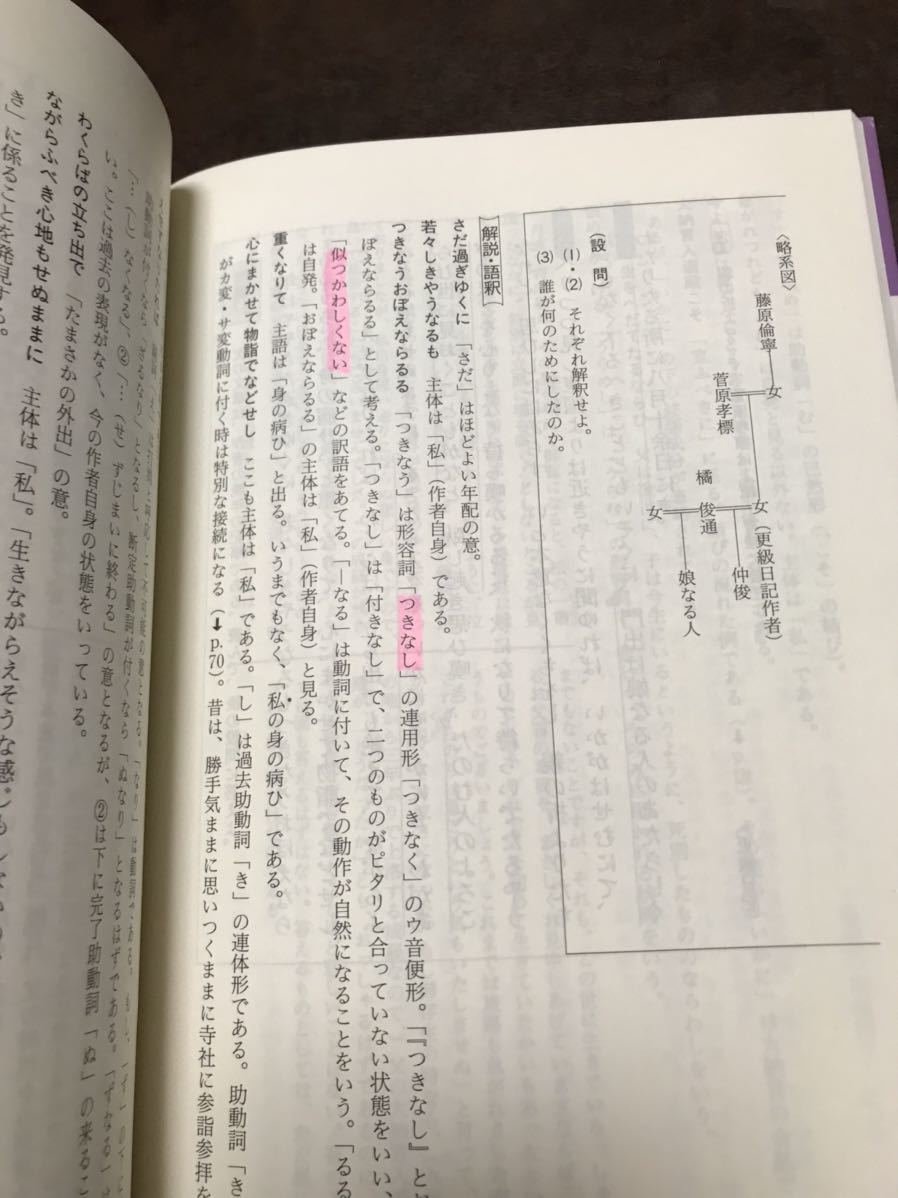 〈略系図〉
藤原倫寧
女
菅原孝標
女(更級日記作者)
橘 俊通
仲俊
女
娘なる人
(設 問)
(1)・(2) それぞれ解釈せよ。
(3) 誰が何のためにしたのか。
解説・語釈
さだ過ぎゆくに 「さだ」はほどよい年配の意。
若々しきやうなるも 主体は「私」(作者自身)である。
つきなうおぼえならるる 「つきなう」は形容詞「つきなし」の連用形「つきなく」のウ音便形。「『つきなし』とお
ぼえならるる」として考える。「つきなし」は「付きなし」で、二つのものがピタリと合っていない状態をいい、
「似つかわしくない」などの訳語をあてる。「―なる」は動詞に付いて、その動作が自然になることをいう。「るる
は自発。「おぼえならるる」の主体は「私」(作者自身)と見る。
重くなりて 主語は「身の病ひ」と出る。いうまでもなく、「私の身の病ひ」である。
心にまかせて物詣でなどせし ここも主体は「私」である。「し」は過去助動詞「き」の連体形である。助動詞「き
がカ変・サ変動詞に付く時は特別な接続になる(➡p.70)。昔は、勝手気ままに思いつくままに寺社に参詣参拝を
「…(し)なくなる」、②「…(せ)ずじまいに終わる」の意となるが、②は下に完了助動詞「ぬ」の来るこ
い。ここは過去の表現がなく、今の作者自身の状態をいっている。
わくらばの立ち出で 「たまさかの外出」の意。
ながらふべき心地もせぬままに 主体は「私」。「生きながらえそうな感じもしない
き」に係ることを発見する。